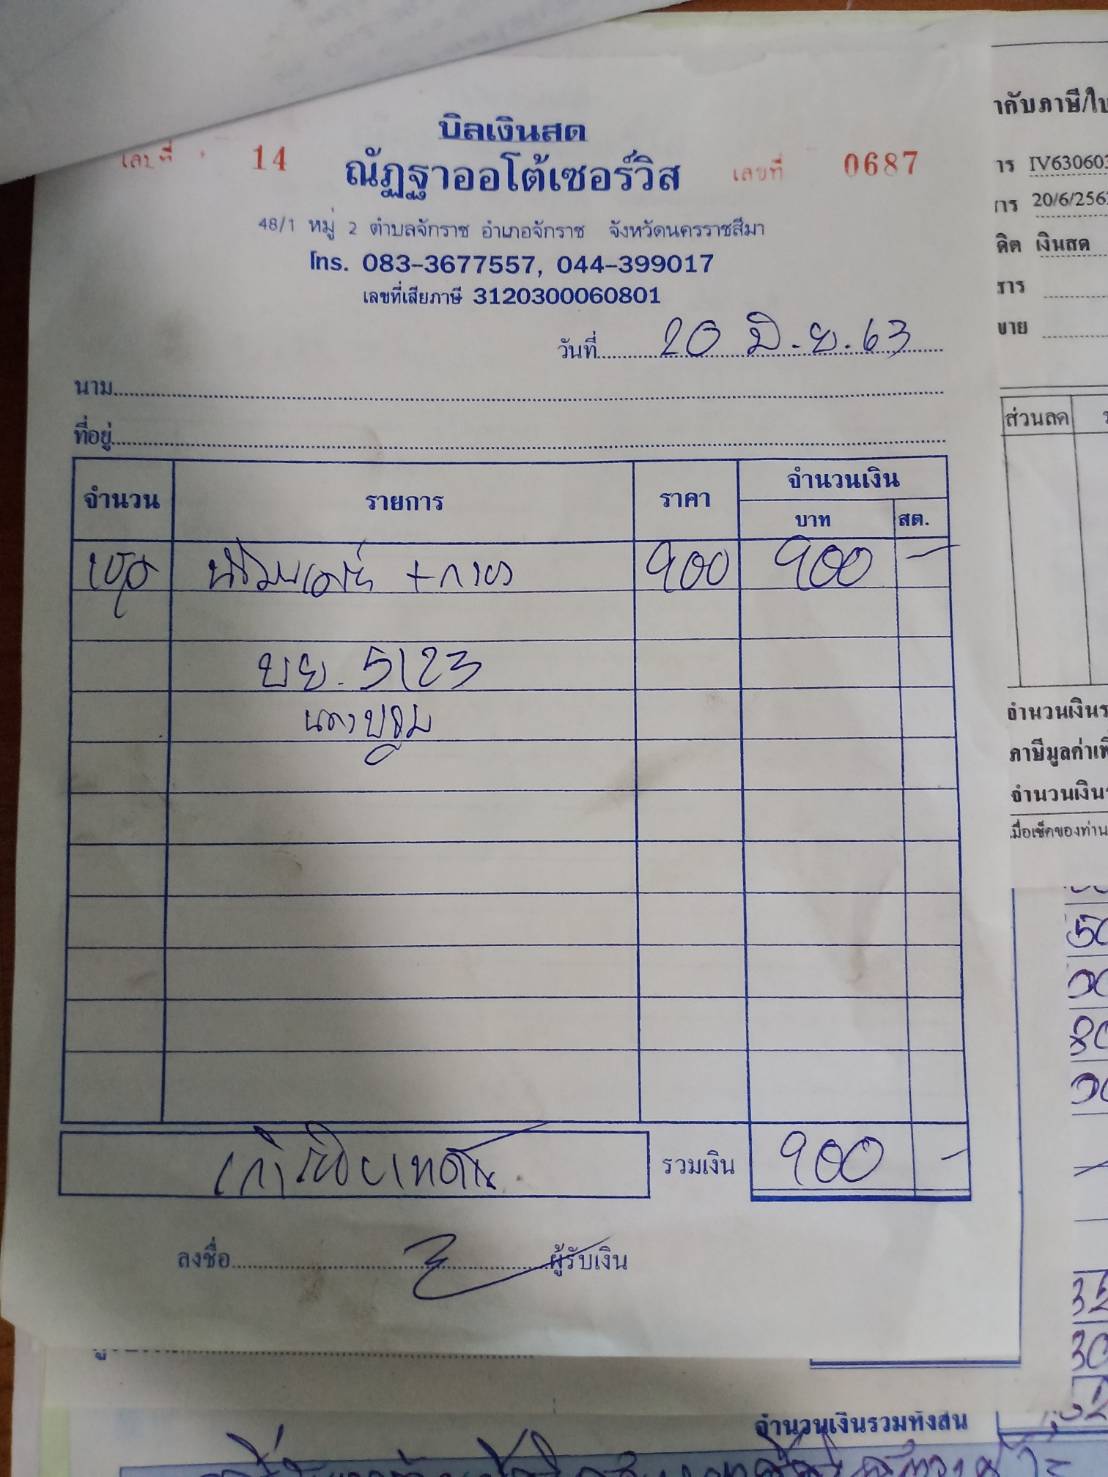 บิลเงินสด
เล่มที่ 14 ณัฏฐาออโต้เซอร์วิส เลขที่ 0687
48/1 หมู่ 2 ตำบลจักราช อำเภอจักราช จังหวัดนครราชสีมา
โทร. 083-3677557, 044-399017
เลขที่เสียภาษี 3120300060801
วันที่ 20 มิ.ย.63
นาม
ที่อยู่
จำนวน รายการ ราคา จำนวนเงิน
บาท สต.
900 900 -
+กาว
บย. 5123
นครปฐม
เก้าร้อยบาทถ้วน รวมเงิน 900 -
ลงชื่อ ผู้รับเงิน
จำนวนเงินรวมทั้งสิ้น
ากับภาษี/ใบ
าร IV630603
การ 20/6/256
ดิต เงินสด
ราร
ขาย
ส่วนลด
จำนวนเงินร
ภาษีมูลค่าเพิ
จำนวนเงิน
เมื่อเช็คของท่าน